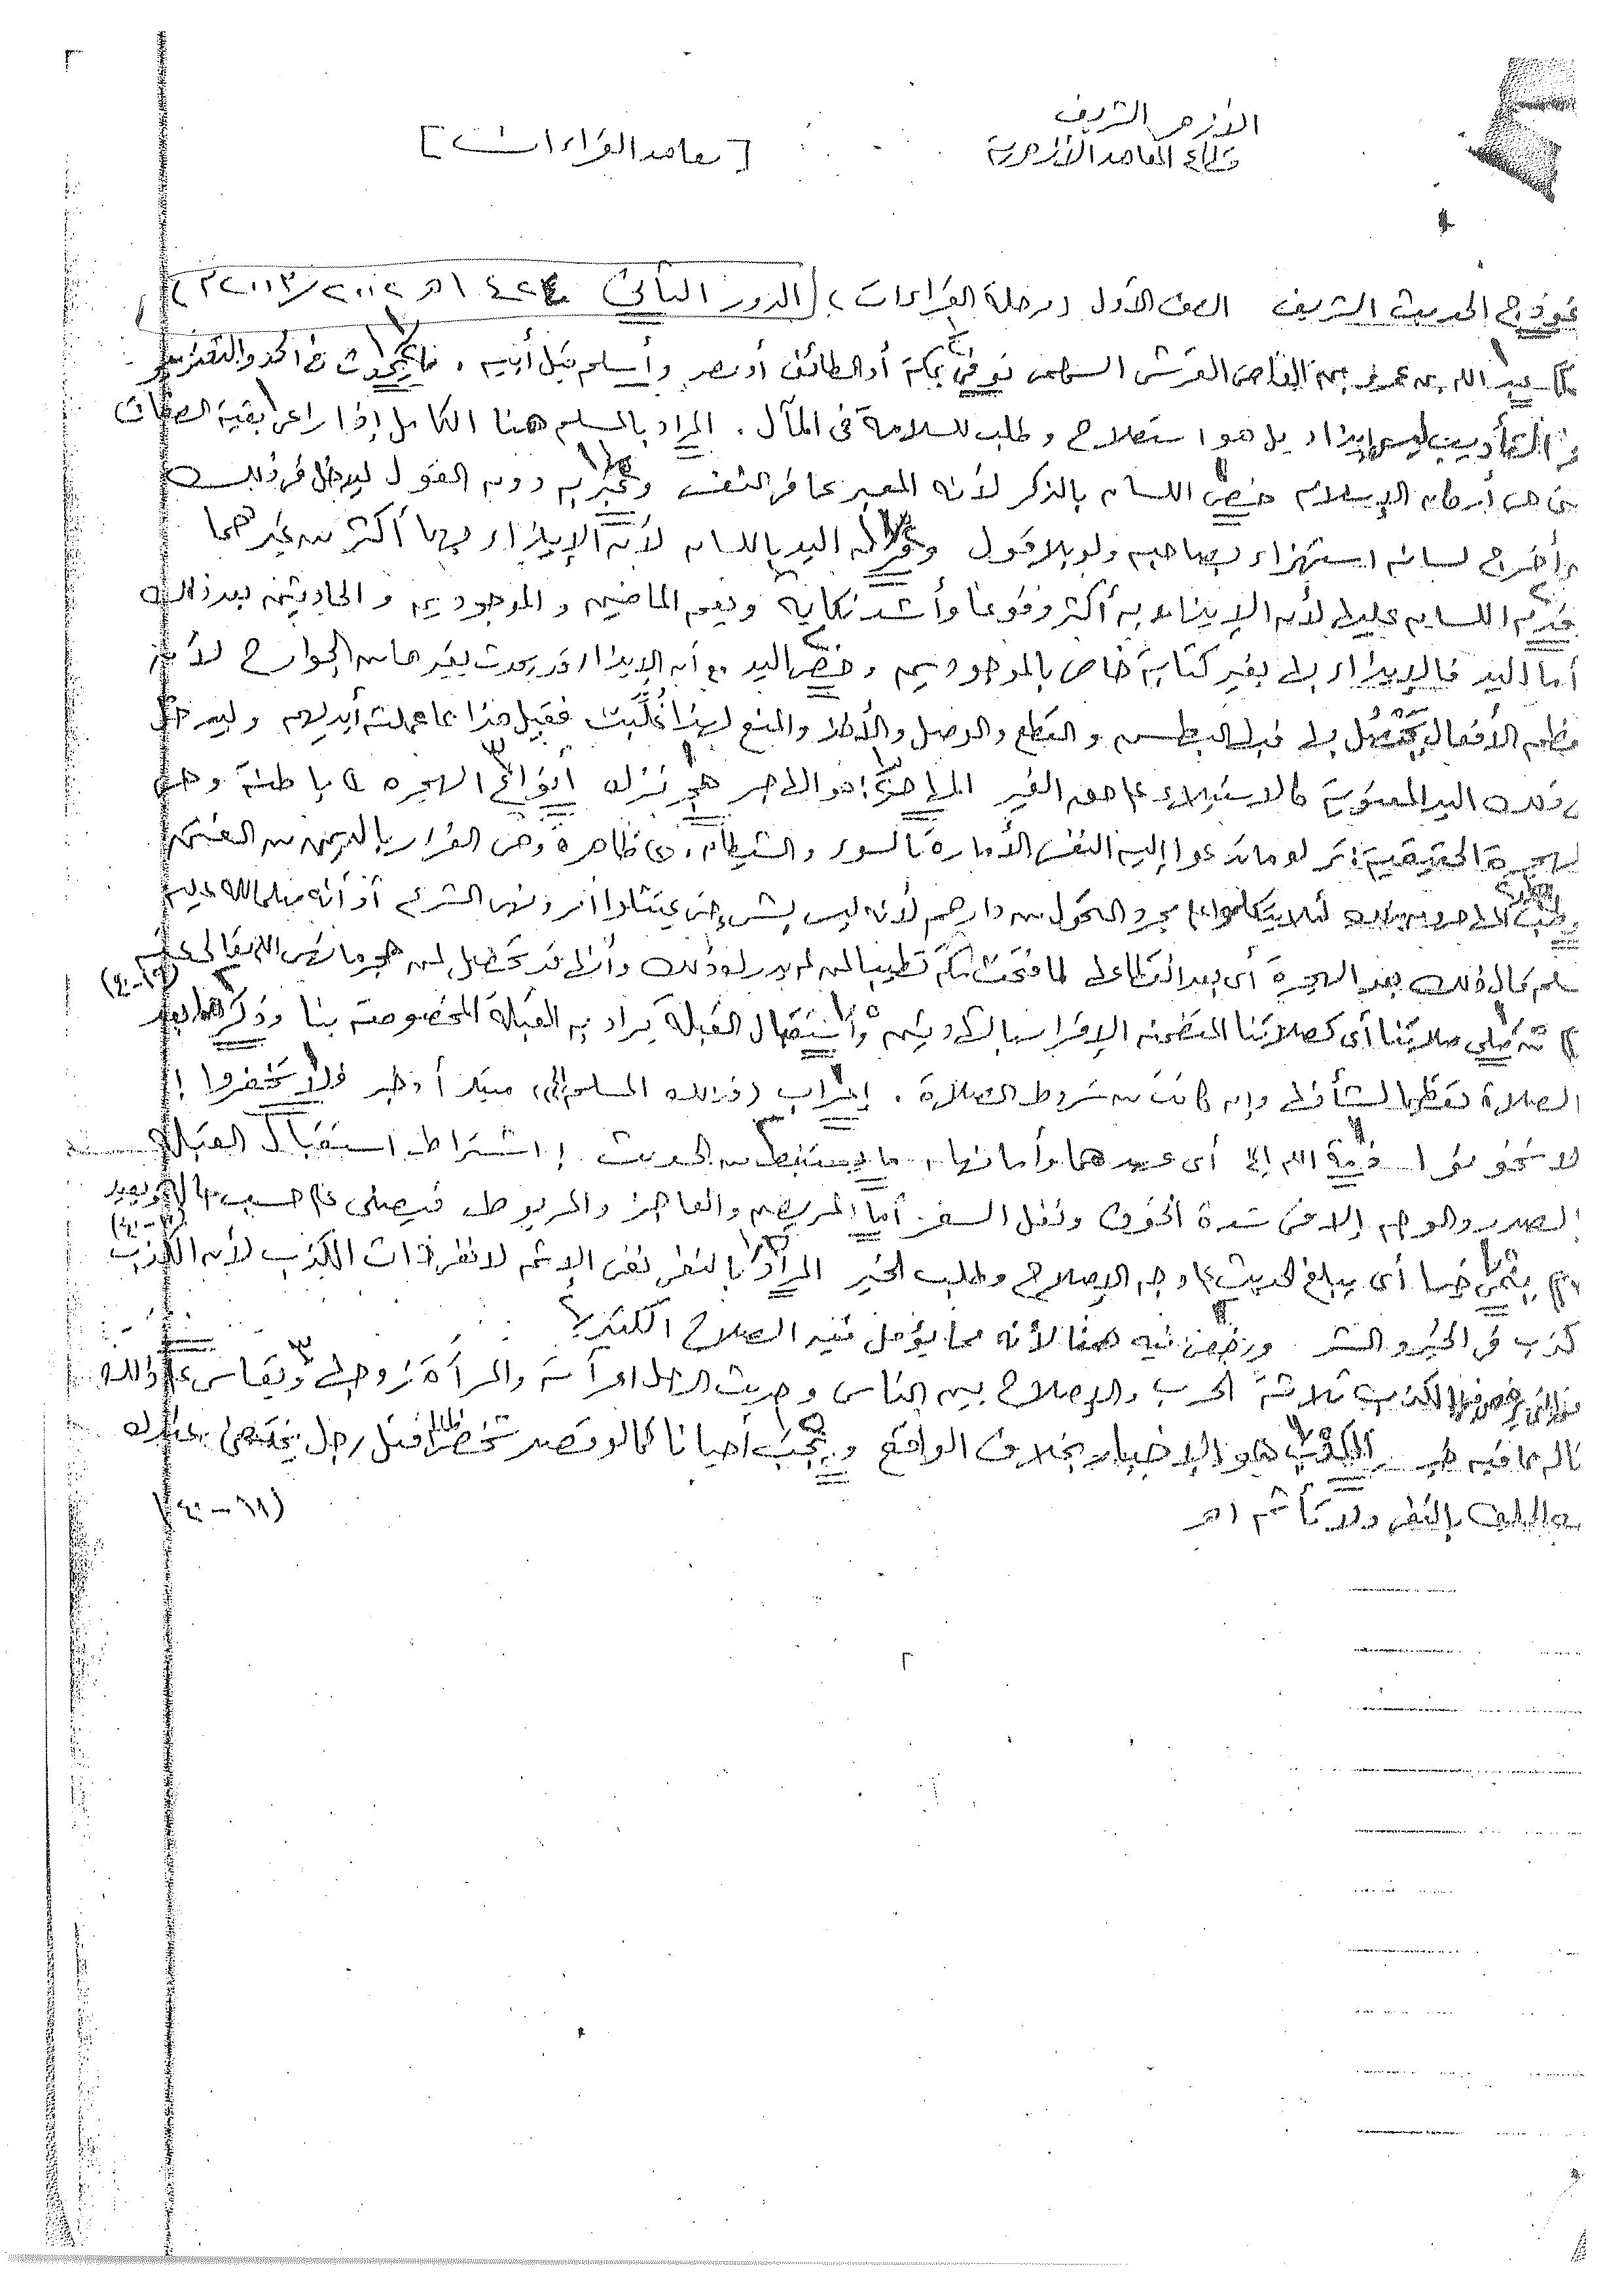 الأزهر الشريف
قطاع المعاهد الأزهرية
[معاهد القراءات]
نموذج الحديث الشريف الصف الأول (مرحلة القراءات) (الدور الثاني ١٤٢٤هـ ٢٠٠٢/٢٠٠٣م)
عبد الله بن عمرو بن العاص القرشى السهمى توفى بمكة أو الطائف أو مصر وأسلم قبل أبيه، ما يحدث فى الحد والتعزير
التأديب ليس إيذاء بل هو استصلاح وطلب للسلامة فى المآل. المراد بالمسلم هنا الكامل إذا راعى بقية الصفات
أركان الإسلام خص اللسان بالذكر لأنه المعبر عما فى النفس وعبر به دون القول ليدخل فى ذلك
أخرج لسانه استهزاء بصاحبه ولو بلا قول وقرن اليد باللسان لأن الإيذاء بهما أكثر من غيرهما
قدم اللسان عليها لأن الإيذاء به أكثر وقوعا وأشد نكاية ويعم الماضين والموجودين والحادثين بعد ذلك
أما اليد فالإيذاء بها بغير كتابة خاص بالموجودين وخص اليد مع أن الإيذاء قد يحدث بغيرها من الجوارح لأن
معظم الأفعال يحصل بها فبها البطش والقطع والوصل والأخذ والمنع لهذا غُلِّبت فقيل هذا مما عملت أيديهم وليدخل
فى ذلك اليد المعنوية كالاستيلاء على حق الغير المهاجر هجر ترك أنواع الهجرة باطنة وهى
الهجرة الحقيقية: ترك ما تدعوا إليه النفس الأمارة بالسوء والشيطان، ظاهرة وهى الفرار بالدين من الفتن
لئلا يتكلوا على مجرد التحول من دارهم لأنه ليس بشىء حتى يمتثلوا أمر ونهى الشرع أو أنه صلى الله عليه
وسلم قال ذلك بعد الهجرة أى بعد انقطاعها لما فتحت مكة تطييبا لمن لم يدرك ذلك وأنها قد تحصل لمن هجر ما نهى الله تعالى عنه
من صلى صلاتنا أى كصلاتنا المتضمنة الإقرار بالشهادتين واستقبال القبلة يراد به القبلة المخصوصة بنا وذكرها بعد
الصلاة تعظيما لشأنها وإن كانت من شروط الصلاة. إعراب (فذلك المسلم) مبتدأ وخبر فلا تخفروا:
لا تخونوا ذمة الله أى عهدهما وأمانها، ما يستنبط من الحديث: اشتراط استقبال القبلة
بالصدر والوجه إلا فى شدة الخوف ونفل السفر. أما المريض والعاجز والمربوط فيصلى على حسب حاله ويعيد
ينمى خيرا أى يبلغ الحديث على وجه الإصلاح وطلب الخير المراد بالنفى نفى الإثم لا نفى ذات الكذب لأن الكذب
كذب فى الخير والشر ورخص فيه هنا لأنه مما يؤمل فيه الصلاح الكثير
الكذب ثلاثة الحرب والإصلاح بين الناس وحديث الرجل امرأته والمرأة زوجها ويقاس على ذلك
الكذب هو الإخبار بخلاف الواقع ويجب أحيانا كما لو قصد شخص ظالم قتل رجل يختفى عندك
الحلف بالنفى ولا تأثم اهـ